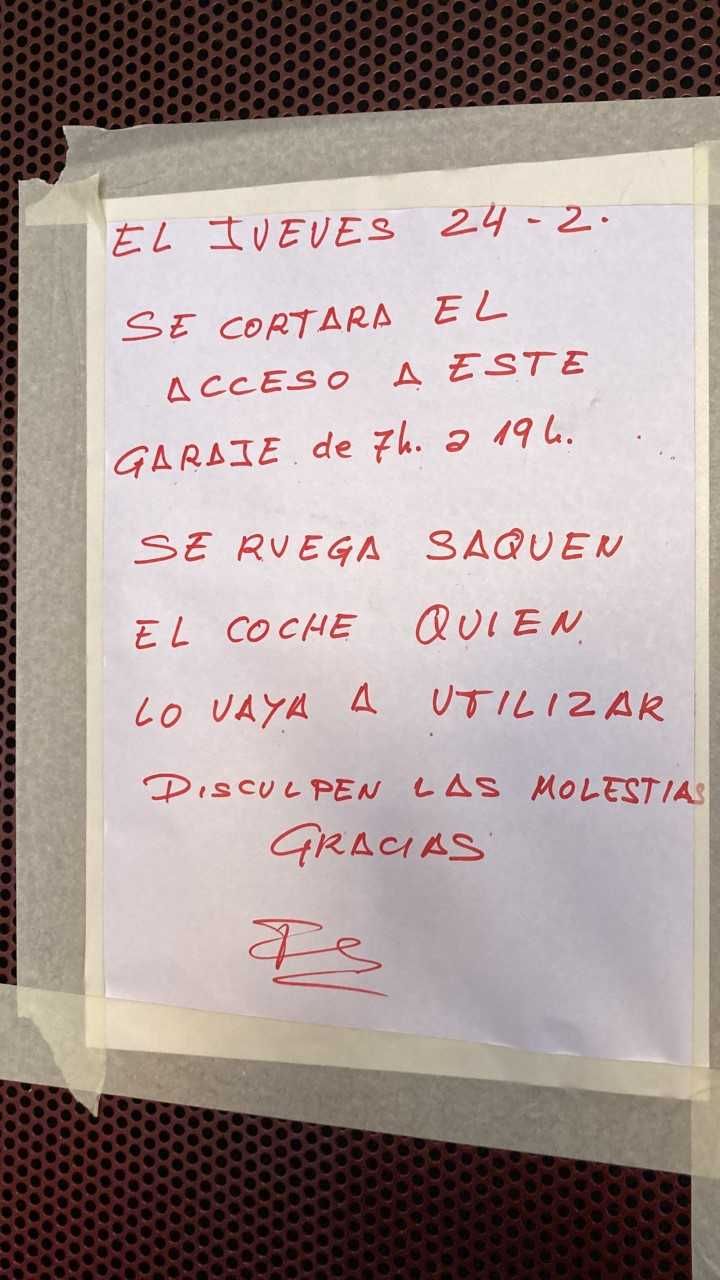 EL JUEVES 24-2.
SE CORTARA EL
ACCESO A ESTE
GARAJE de 7h. a 19h.
SE RUEGA SAQUEN
EL COCHE QUIEN
LO VAYA A UTILIZAR
DISCULPEN LAS MOLESTIAS
GRACIAS